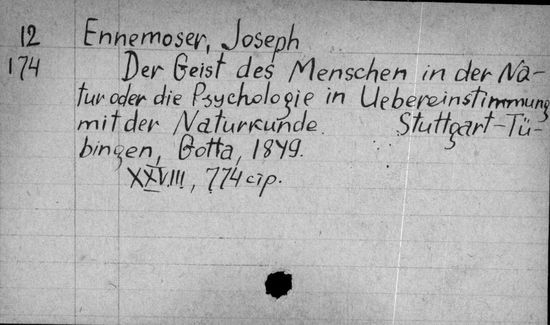 12 Ennemoser, Joseph
174 Der Geist des Menschen in der Na-
tur oder die Psychologie in Uebereinstimmung
mit der Naturkunde. Stuttgart-Tü-
bingen, Gotta, 1849.
XXVIII, 774 стр.